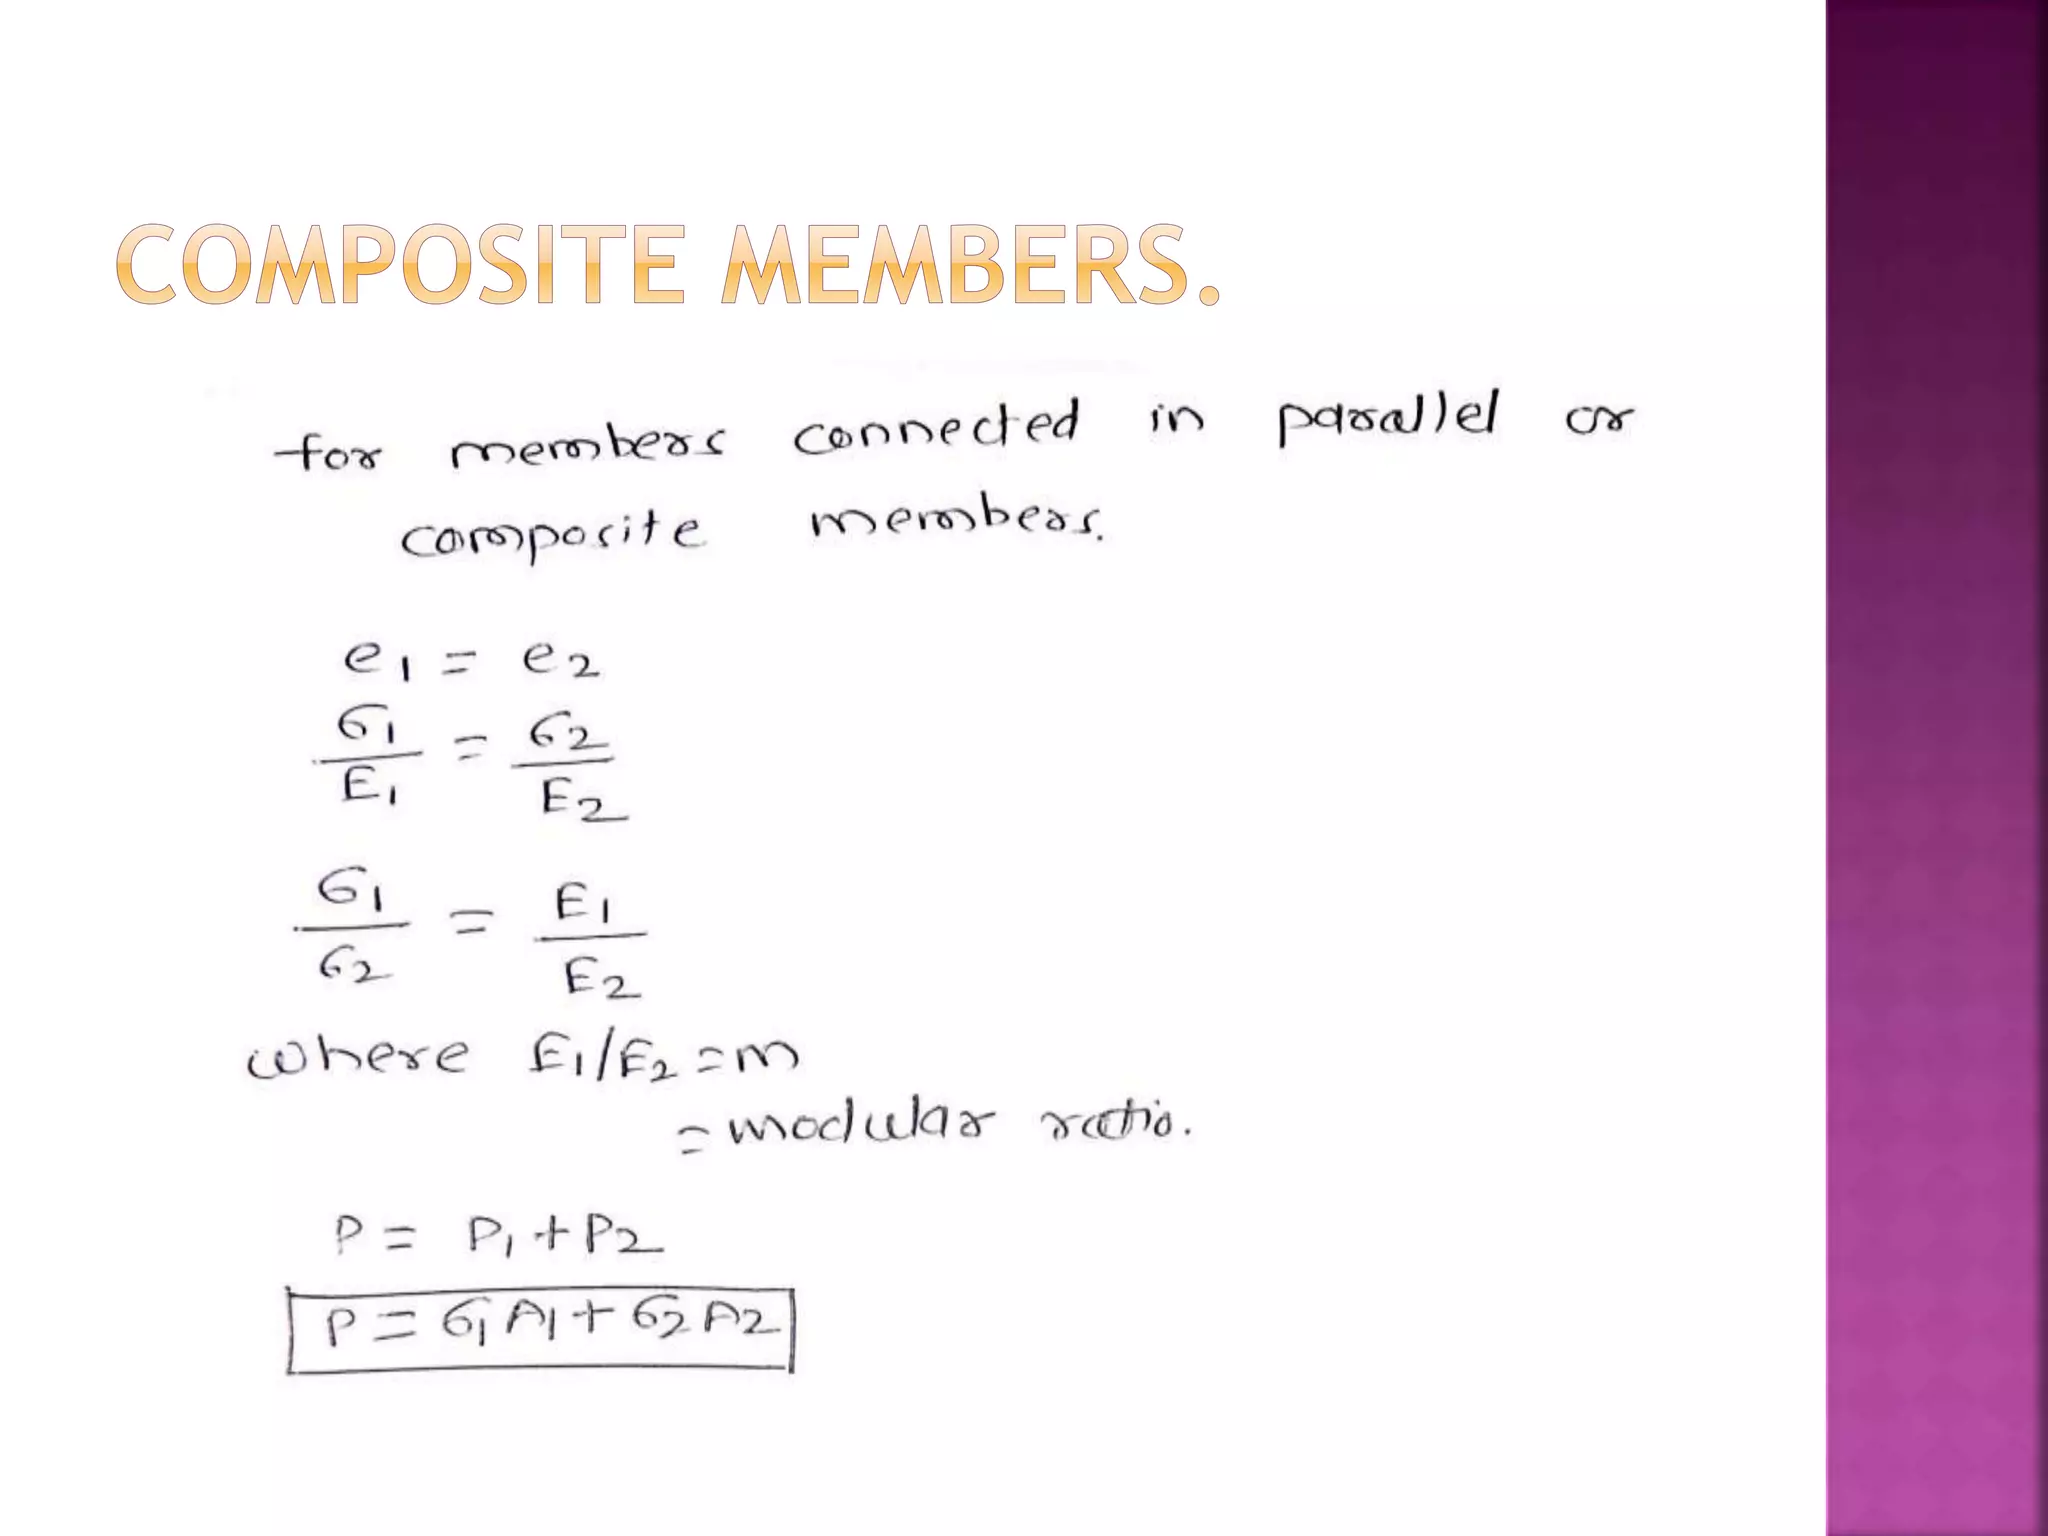 COMPOSITE MEMBERS.
for members connected in parallel or
composite members.
e1 = e2
σ1/E1 = σ2/E2
σ1/σ2 = E1/E2
where E1/E2 = m
= modular ratio.
P = P1 + P2
P = σ1 A1 + σ2 A2